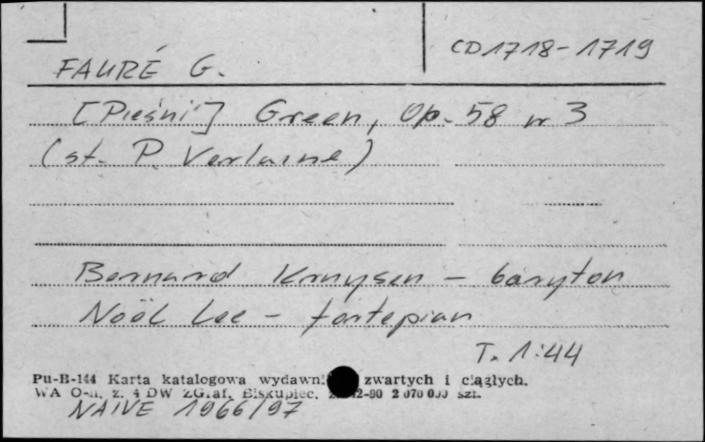 CD1718-1719
FAURÉ G.
[Pieśni] Green, Op. 58 nr 3
(sł. P. Verlaine)
Bernard Kruysen - baryton
Noël Lee - fortepian
T. 1:44
Pu-B-144 Karta katalogowa wydawni zwartych i ciągłych.
WA O-n, z. 4 DW ZGraf. Biskupiec, 2 070 000 szt.
NAIVE 1966/97